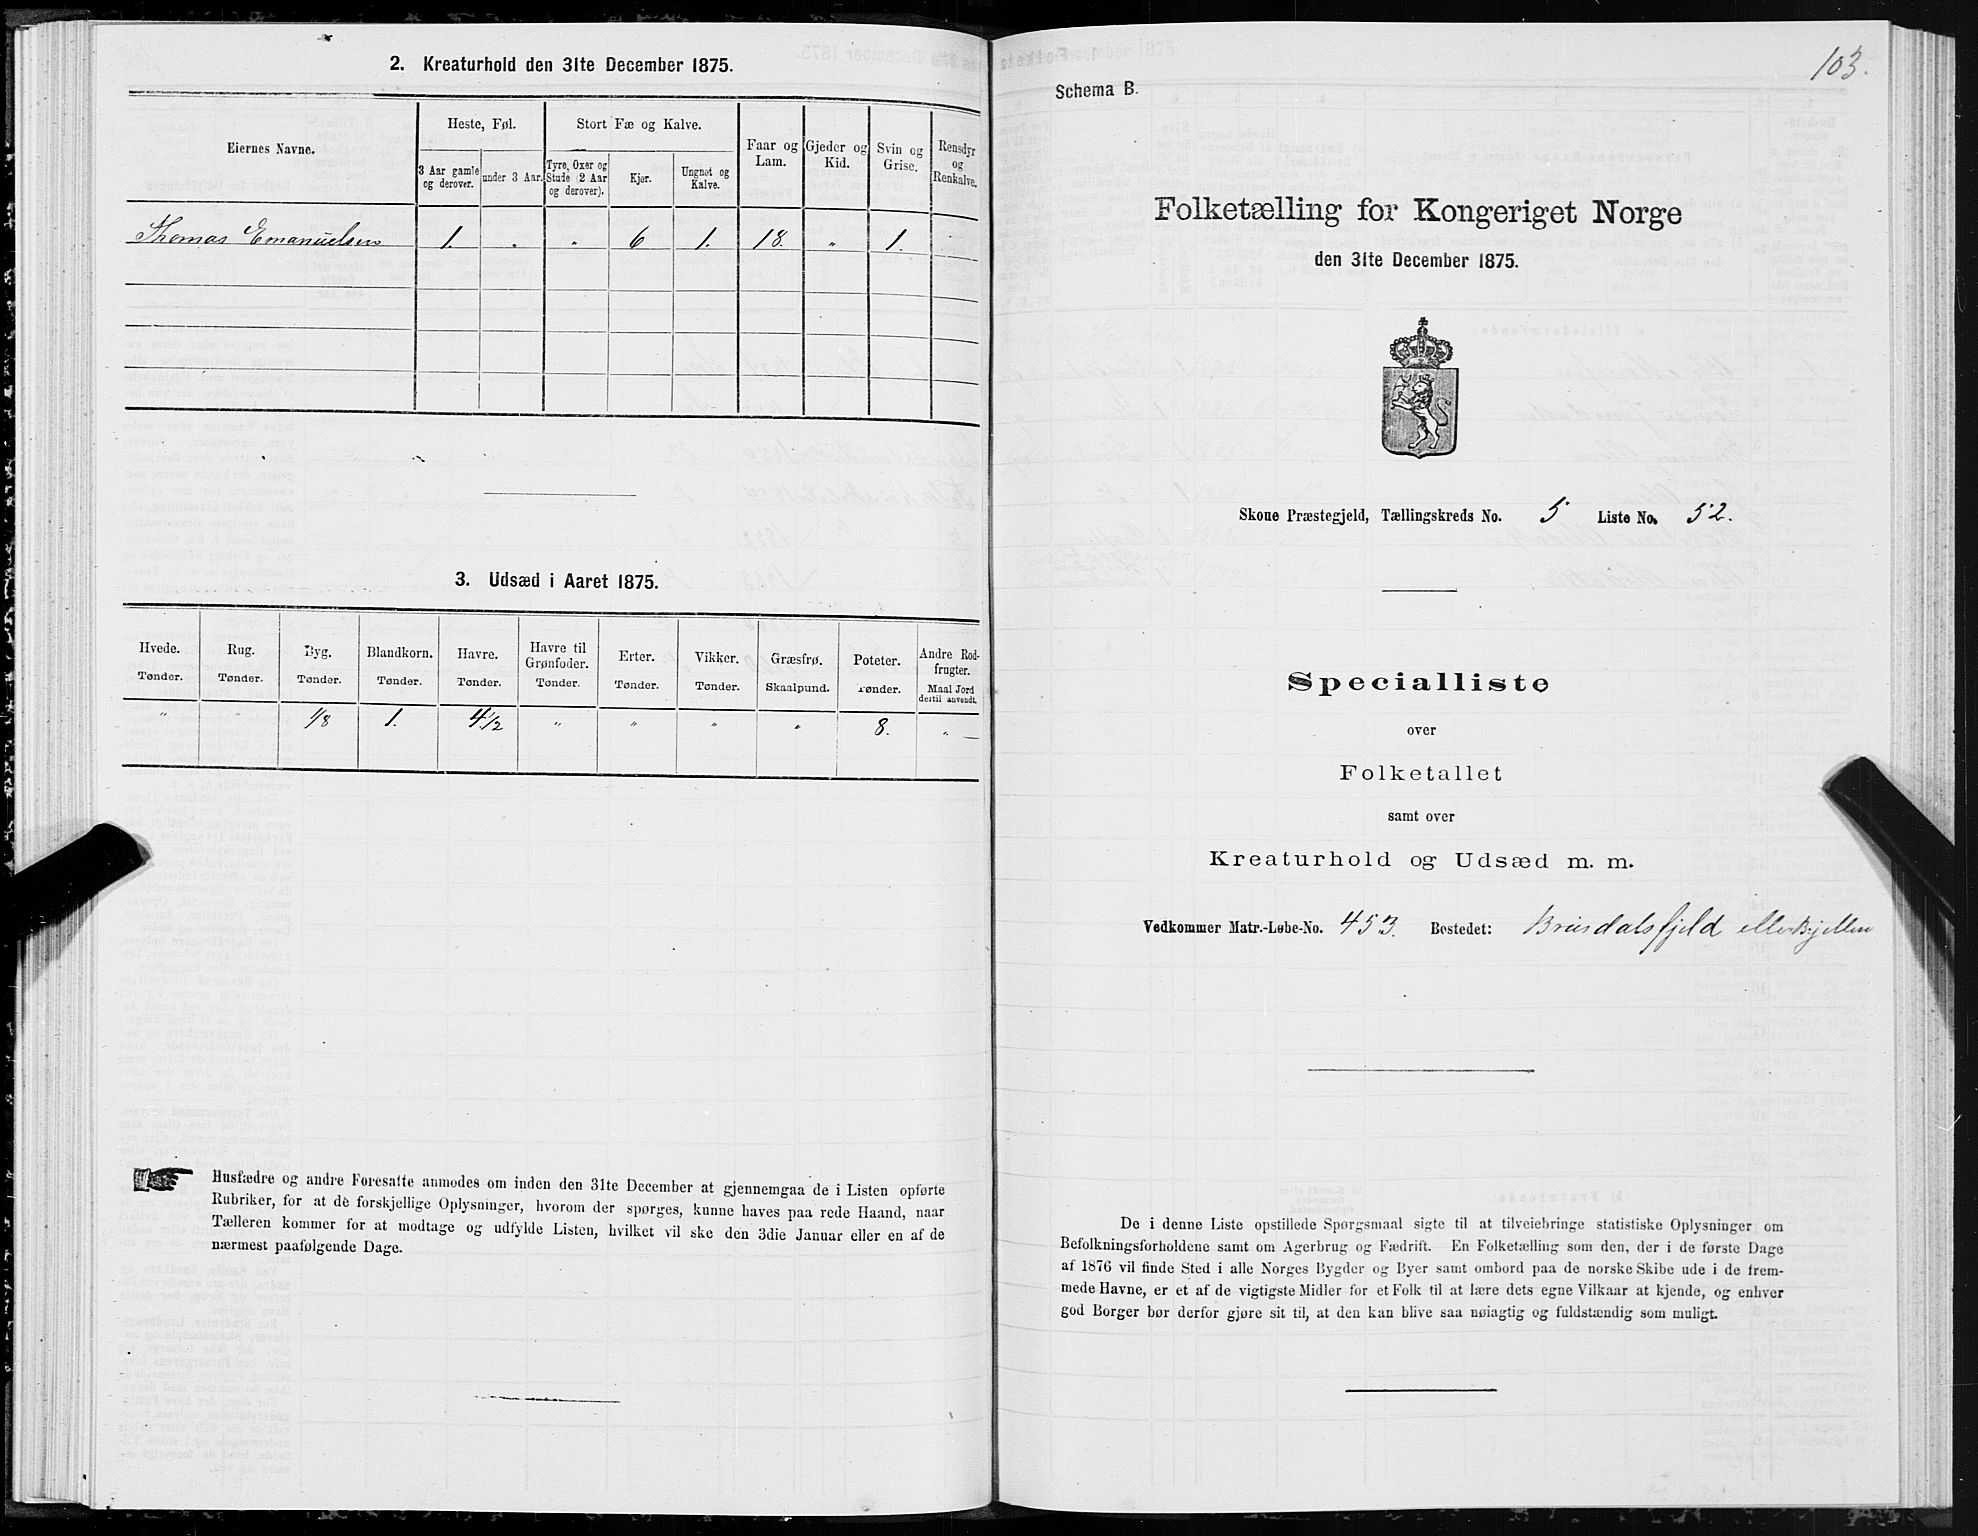 2. Kreaturhold den 31te December 1875.
Eiernes Navne.
Heste, Føl.
Stort Fæ og Kalve.
Faar og Lam.
Gjeder og Kid.
Svin og Grise.
Rensdyr og Renkalve.
3 Aar gamle og derover.
under 3 Aar.
Tyre, Oxer og Stude (2 Aar og derover).
Kjør.
Ungnøt og Kalve.
Thomas Emanuelsen 1. " " 6 1. 18. " 1. "
3. Udsæd i Aaret 1875.
Hvede. Rug. Byg. Blandkorn. Havre. Havre til Grønfoder. Erter. Vikker. Græsfrø. Poteter. Andre Rodfrugter.
Tønder. Tønder. Tønder. Tønder. Tønder. Tønder. Tønder. Tønder. Skaalpund. Tønder. Maal Jord dertil anvendt.
" " 1/8 1. 4 1/2 " " " " 8. " —
Husfædre og andre Foresatte anmodes om inden den 31te December at gjennemgaa de i Listen opførte
Rubriker, for at de forskjellige Oplysninger, hvorom der spørges, kunne haves paa rede Haand, naar
Tælleren kommer for at modtage og udfylde Listen, hvilket vil ske den 3die Januar eller en af de
nærmest paafølgende Dage.
103.
Schema B.
Folketælling for Kongeriget Norge
den 31te December 1875.
Skoue Præstegjeld, Tællingskreds No. 5 Liste No. 52.
Specialliste
over
Folketallet
samt over
Kreaturhold og Udsæd m. m.
Vedkommer Matr.-Løbe-No. 453. Bostedet: Brusdalsfjeld eller Bjellen
De i denne Liste opstillede Spørgsmaal sigte til at tilveiebringe statistiske Oplysninger om
Befolkningsforholdene samt om Agerbrug og Fædrift. En Folketælling som den, der i de første Dage
af 1876 vil finde Sted i alle Norges Bygder og Byer samt ombord paa de norske Skibe ude i de frem-
mede Havne, er et af de vigtigste Midler for et Folk til at lære dets egne Vilkaar at kjende, og enhver
god Borger bør derfor gjøre sit til, at den kan blive saa nøiagtig og fuldstændig som muligt.